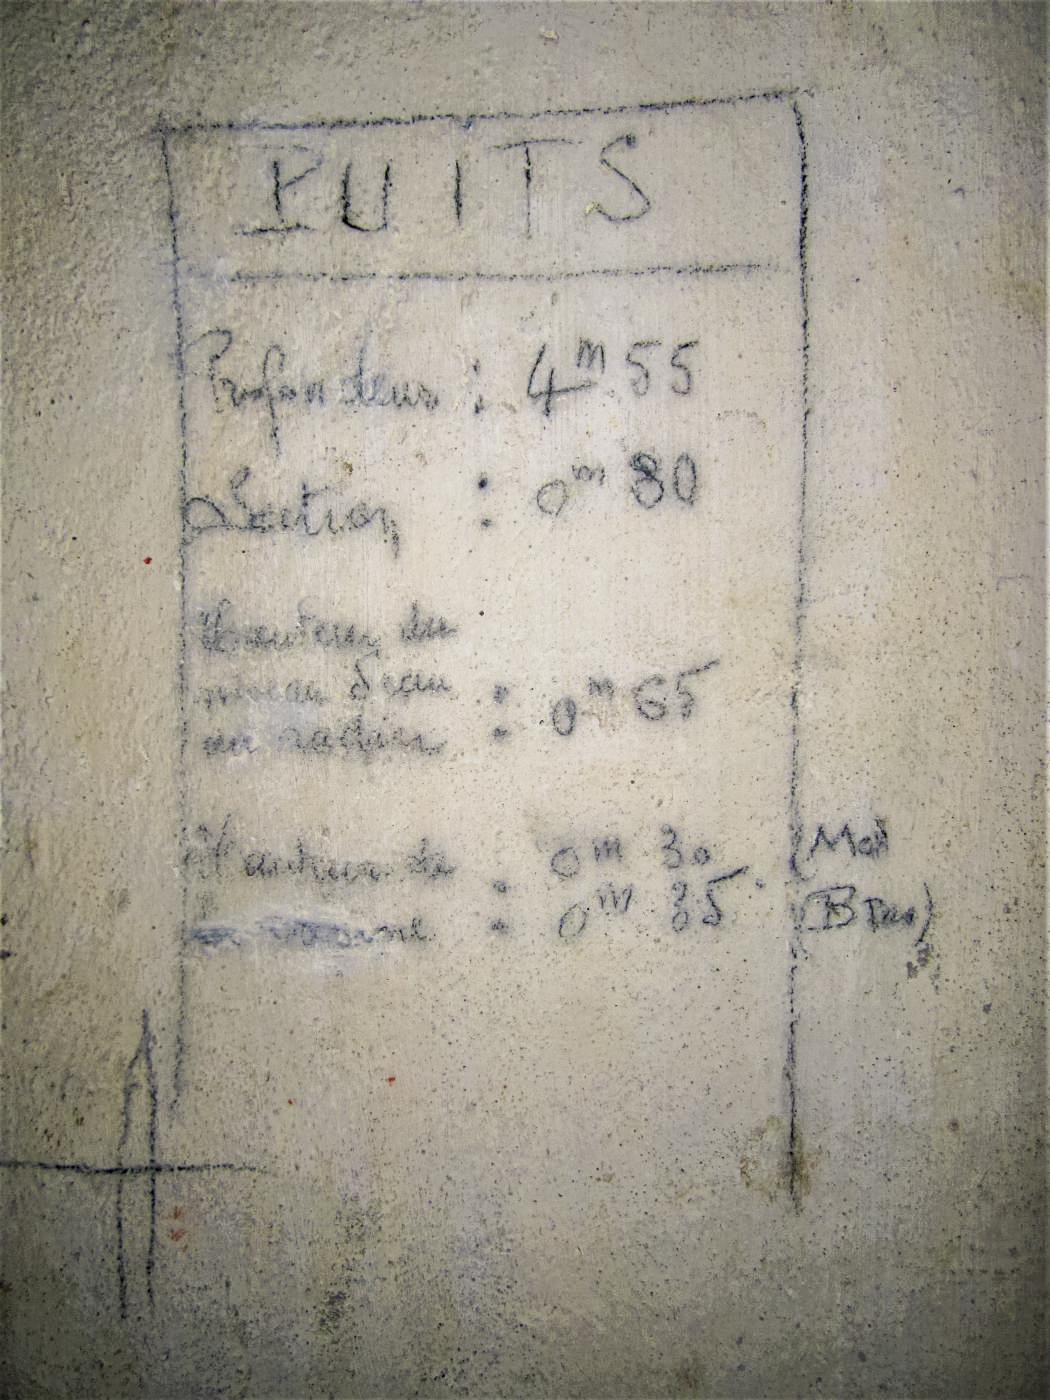 PUITS
Profondeur : 4m 55
Section : 0m 80
Hauteur du
niveau d'eau : 0m 65
au radier
Hauteur de : 0m 30
: 0m 85